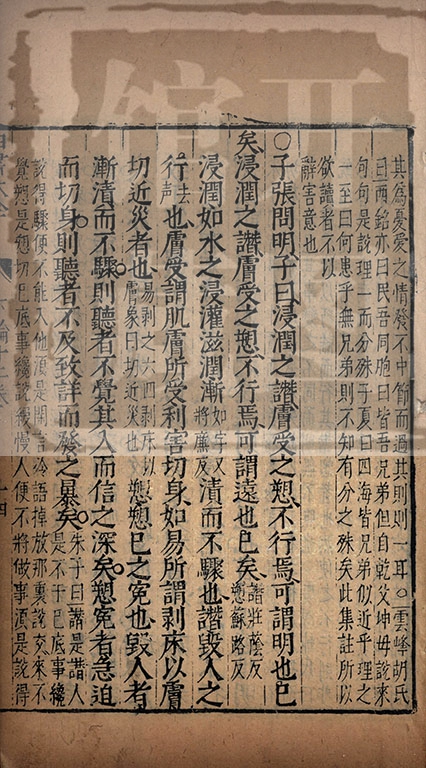 其為憂愛之情發不中節而過其則則一耳○雲峰胡氏
曰西銘亦曰民吾同胞曰皆吾兄弟但自乾父坤毋說來
句句是說理一而分殊子夏曰四海皆兄弟似近乎理之
一至曰何患乎無兄弟則不知有分之殊矣此集註所以
欲讀者不以
辭害意也
○子張問明子曰浸潤之譖膚受之愬不行焉可謂明也已
矣浸潤之譖膚受之愬不行焉可謂遠也已矣譖莊蔭反
愬蘇路反
浸潤如水之浸灌滋潤漸如字又
將廉反漬而不驟也譖毀人之
行去
声也膚受謂肌膚所受利害切身如易所謂剥床以膚
切近災者也易剥之六四剥床以
膚象曰切近災也愬愬己之冤也毀人者
漸漬而不驟則聽者不覺其入而信之深矣愬冤者急迫
而切身則聽者不及致詳而發之暴矣朱子曰譖是譖人
是不干己底事纔
說得驟便不能入他須是閑言冷語掉放那裏說教來不
覺愬是愬切己底事纔說慢人便不將做事須是說得